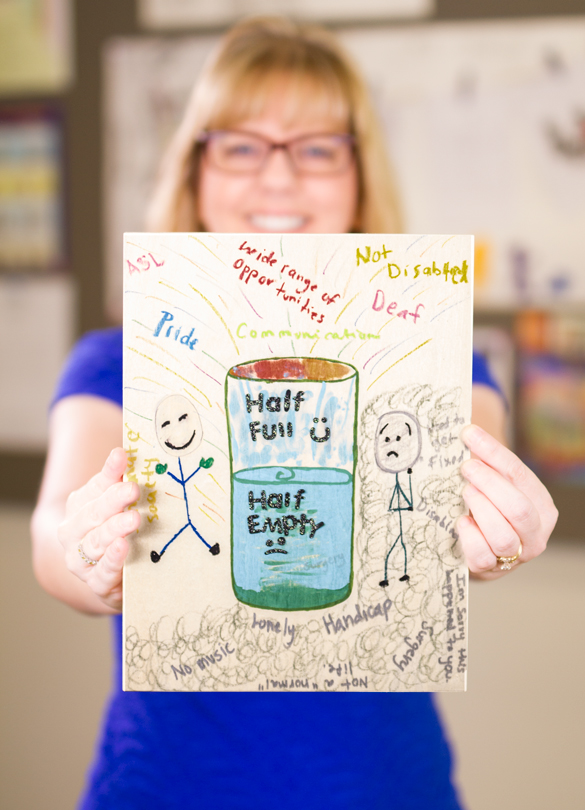 ASL
wide range of
opportunities
Not
Disabled
Deaf
Pride
Communication
Half
Full
Half
Empty
society
fixed
Disability
I'm Sorry this
happened to you.
Lonely
Handicap
Surgery
No music
Not a "normal"
life